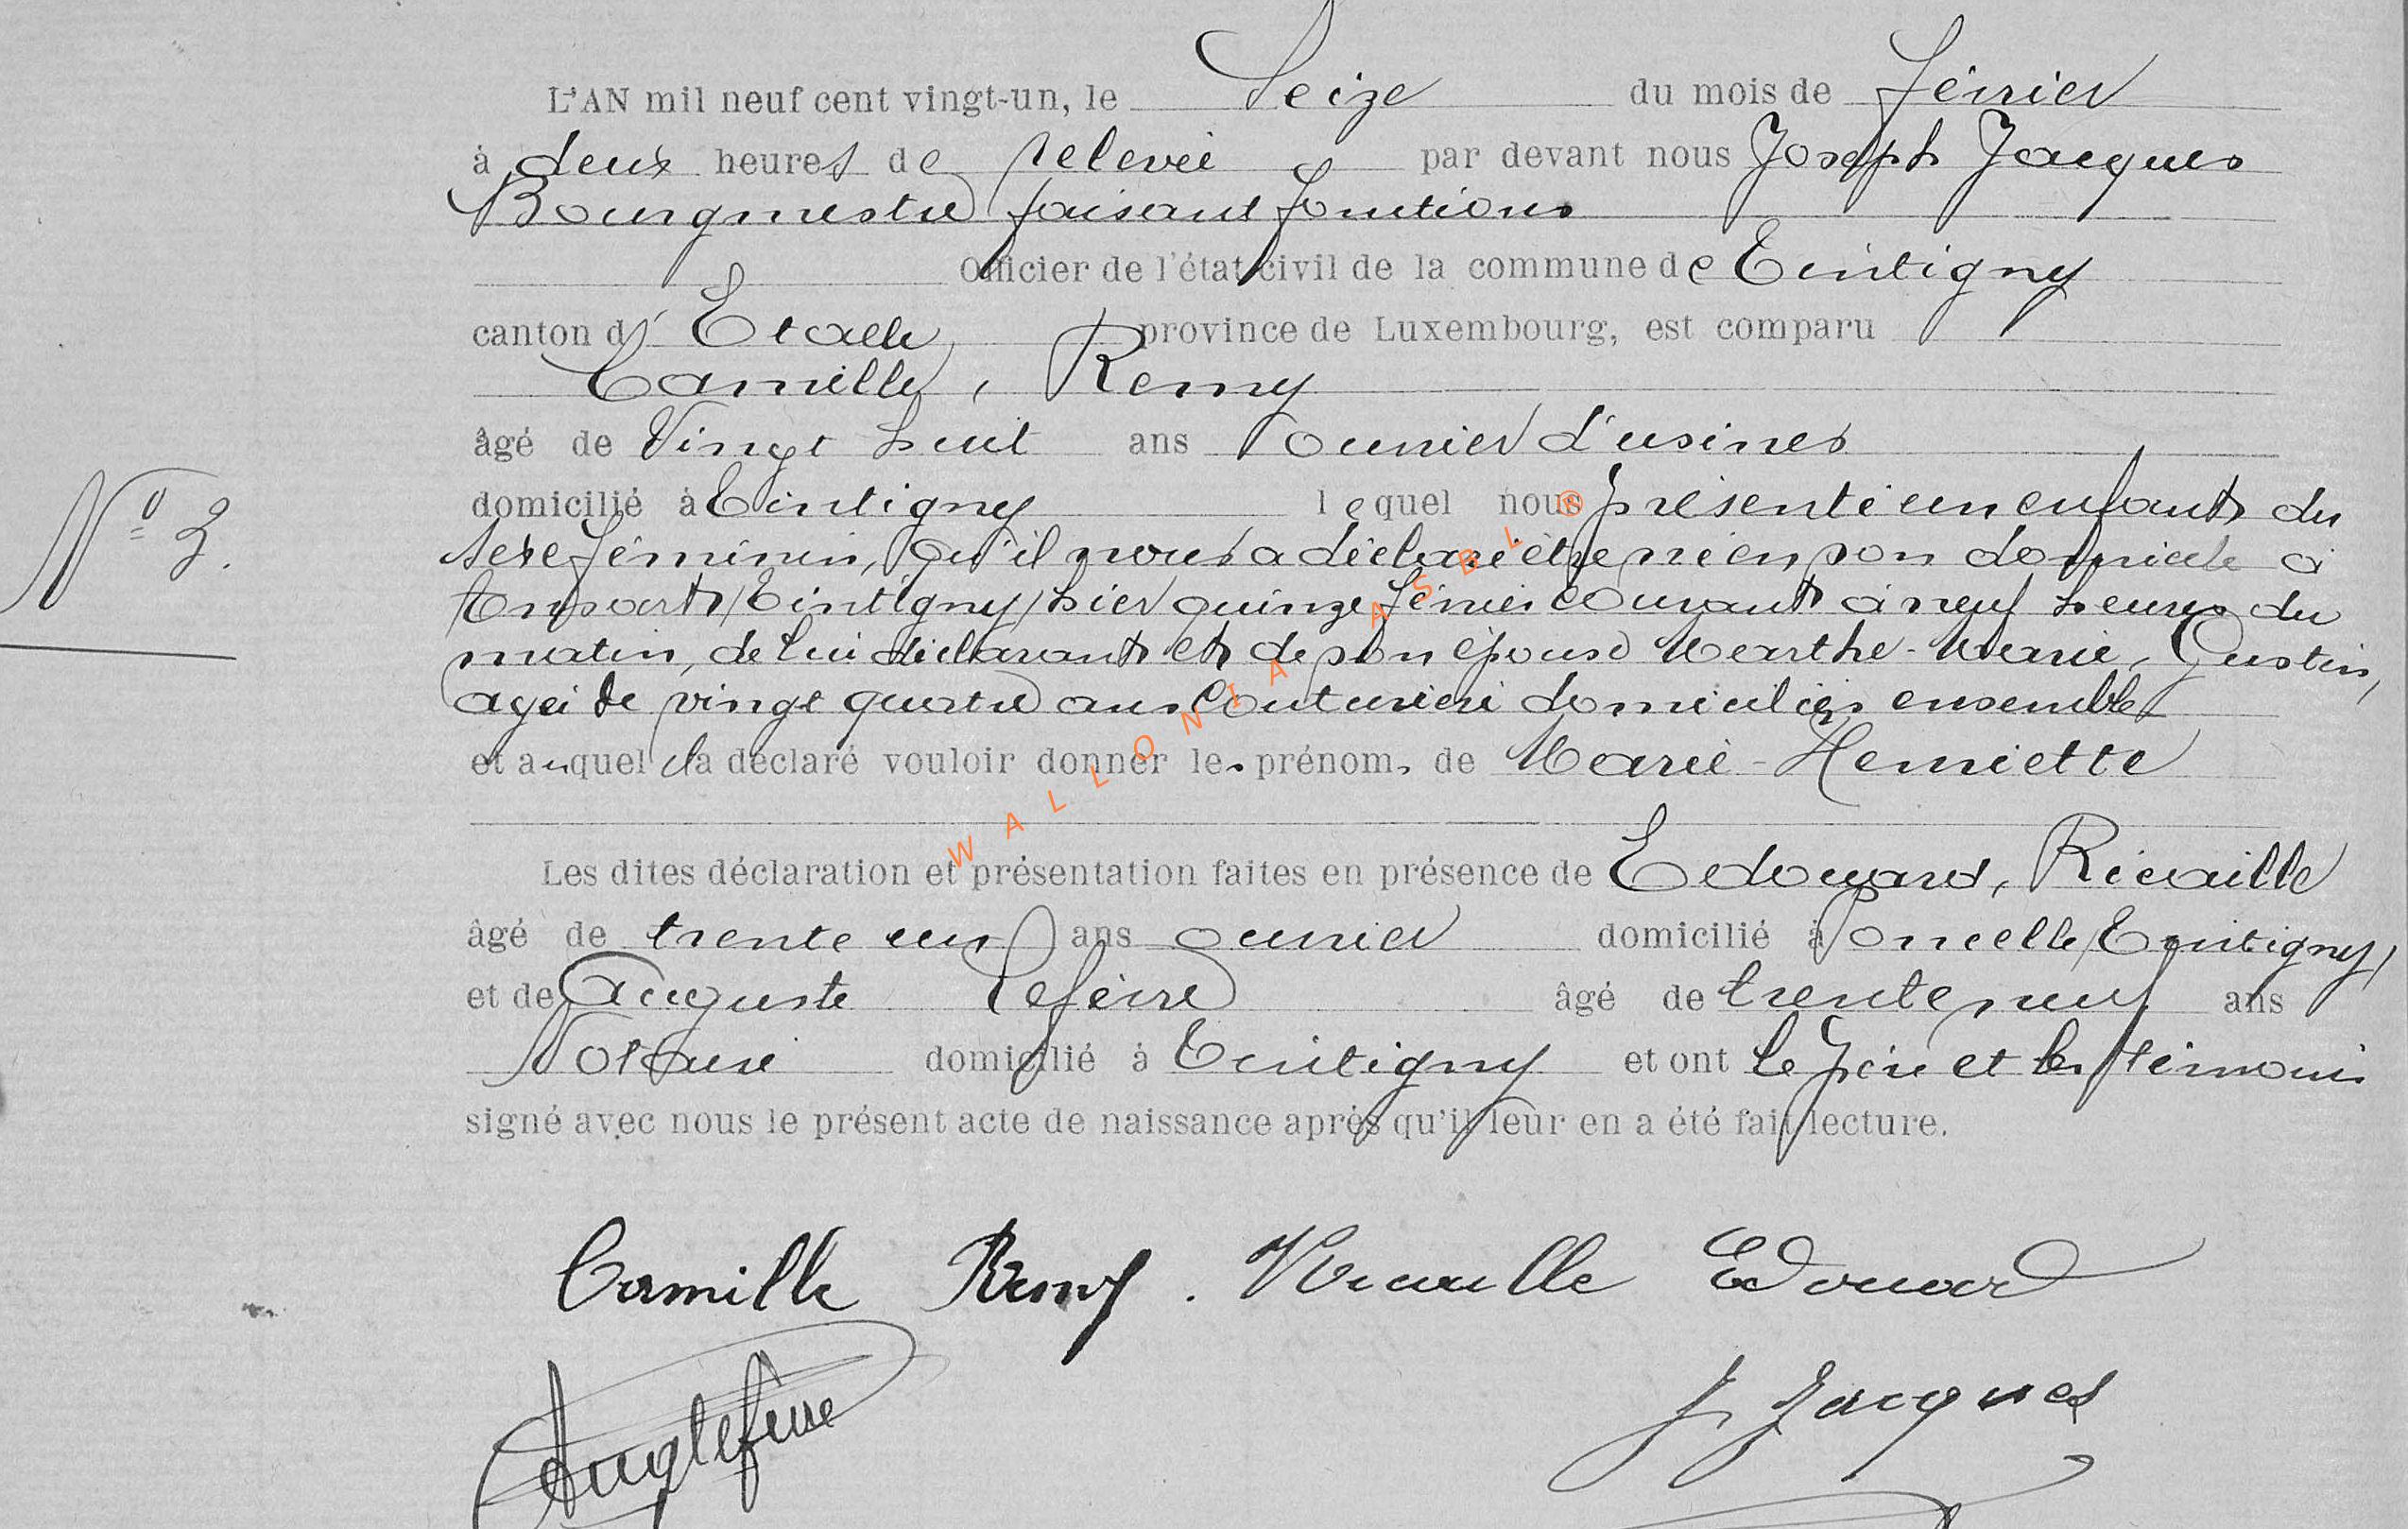 L'AN mil neuf cent vingt-un, le Seize du mois de février
à deux heures de relevée par devant nous Joseph Jacques
Bourgmestre faisant fonctions
Officier de l'état civil de la commune de Tintigny
canton d'Etalle province de Luxembourg, est comparu
Camille, Remy
âgé de Vingt huit ans ouvrier d'usines
domicilié à Tintigny lequel nous présenté un enfant du
sexe féminin, qu'il nous a déclaré être né en son domicile à
Ansart (Tintigny) hier quinze février courant à neuf heures du
matin, de lui déclarant et de son épouse Marthe-Marie, Gustin,
agée de vingt quatre ans Couturière domiciliés ensemble
et auquel il a déclaré vouloir donner les prénoms de Marie-Henriette
Les dites déclaration et présentation faites en présence de Edouard, Ricaille
âgé de trente un ans ouvrier domicilié à Poncelle (Tintigny)
et de Auguste Lefèvre âgé de trente neuf ans
Notaire domicilié à Tintigny et ont le père et les témoins
signé avec nous le présent acte de naissance après qu'il leur en a été fait lecture.
N° 3.
Camille Remy. Ricaille Edouard
Aug Lefèvre
J. Jacques
WALLONIA ASBL ®